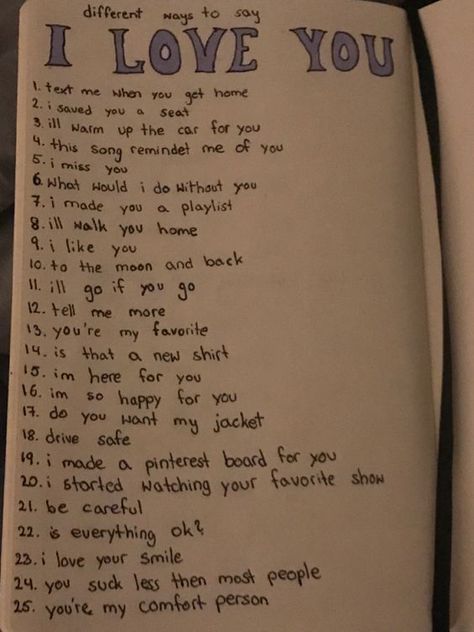 different ways to say
I LOVE YOU
1. text me when you get home
2. i saved you a seat
3. ill warm up the car for you
4. this song remindet me of you
5. i miss you
6. what would i do without you
7. i made you a playlist
8. ill walk you home
9. i like you
10. to the moon and back
11. ill go if you go
12. tell me more
13. you're my favorite
14. is that a new shirt
15. im here for you
16. im so happy for you
17. do you want my jacket
18. drive safe
19. i made a pinterest board for you
20. i started watching your favorite show
21. be careful
22. is everything ok?
23. i love your smile
24. you suck less then most people
25. you're my comfort person